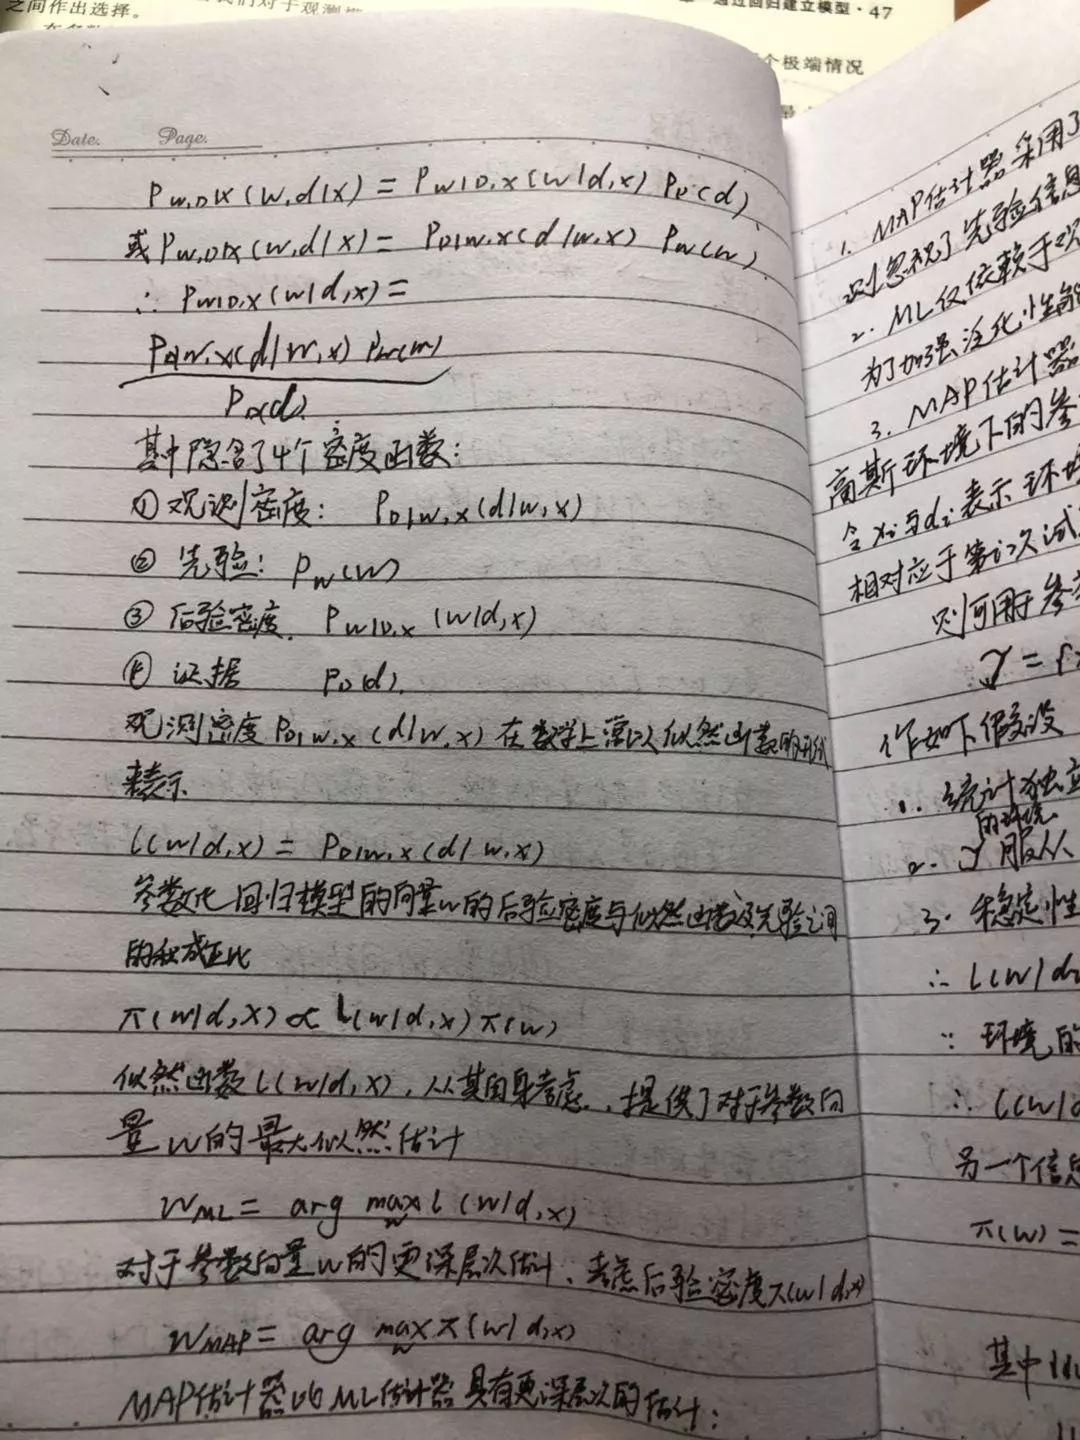 之间作出选择。
通过回归建立模型·47
个极端情况
Date. Page.
P_{W,D|X}(w,d|x) = P_{W|D,X}(w|d,x) P_D(d)
或 P_{W,D|X}(w,d|x) = P_{D|W,X}(d|w,x) P_W(w)
∴ P_{W|D,X}(w|d,x) =
P_{D|W,X}(d|w,x) P_W(w)
P_D(d)
其中隐含了4个密度函数:
① 观测密度: P_{D|W,X}(d|w,x)
② 先验: P_W(w)
③ 后验密度. P_{W|D,X}(w|d,x)
④ 证据 P_D(d).
观测密度 P_{D|W,X}(d|w,x) 在数学上常以似然函数的形式
来表示
l(w|d,x) = P_{D|W,X}(d|w,x)
参数化回归模型的向量w的后验密度与似然函数及先验之间
的积成正比
π(w|d,x) ∝ l(w|d,x)π(w)
似然函数l(w|d,x), 从其自身考虑, 提供了对于参数向
量w的最大似然估计
W_{ML} = arg max_w l(w|d,x)
对于参数向量w的更深层次估计、考虑后验密度π(w|d,x)
W_{MAP} = arg max_w π(w|d,x)
MAP估计器比ML估计器具有更深层次的估计:
1. MAP估计器采用了
则忽视了先验信息
2. ML仅依赖于观
为了加强泛化性能
3. MAP估计器
高斯环境下的参
令xᵢ与dᵢ表示环境
相对应于第i次试
则可用于参
y =
作如下假设
1. 统计独立
的环境.
2. y服从
3. 稳定性
∴ l(w|d
∵ 环境的
∴ l(w|d
另一个信息
π(w) =
其中